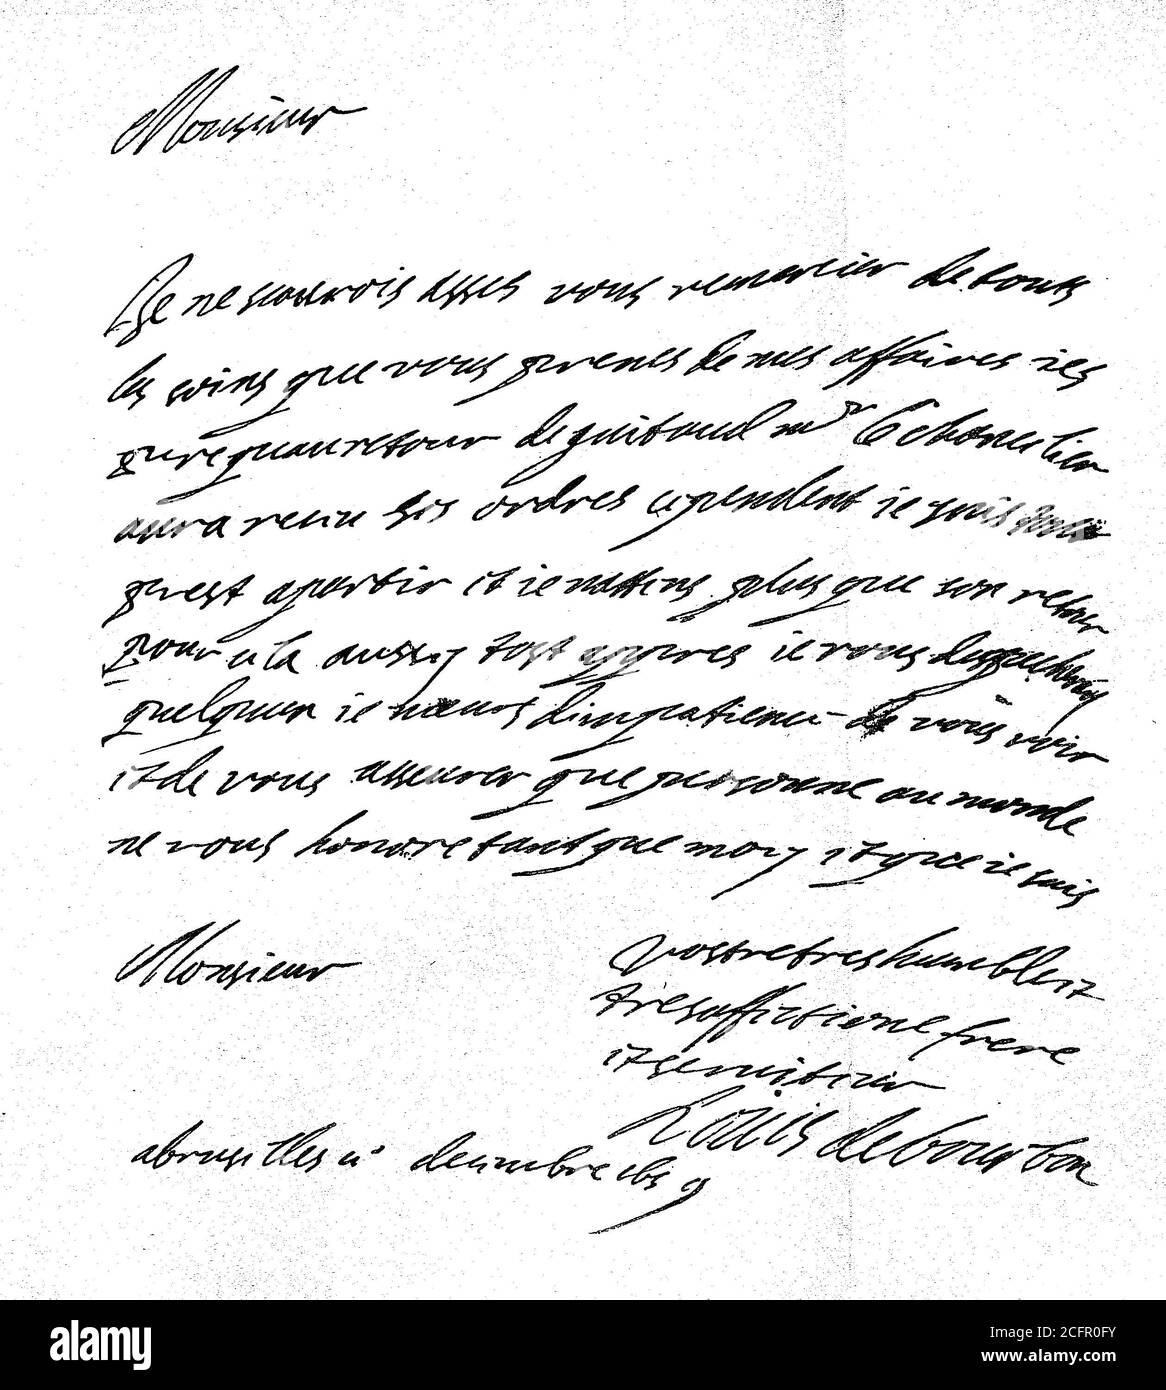 Monsieur
Je ne scaurois asses vous remercier de touts
les soins que vous prenes de mes affaires ies
pere quau retour de guitaud mr le chancelier
aura receu ses ordres cependent ie suis
prest a partir et ie nattens plus que son retour
pour cela aussy tost appres ie vous depescherey
quelquun ie meurs dimpatience de vous voir
et de vous asseurer que personne au monde
ne vous honore tant que moy et que ie suis
Monsieur
vostre tres humble et
tres affectione frere
et serviteur
Louis de bourbon
a bruxelles ce decembre 1659
alamy
Image ID: 2CFR0FY
www.alamy.com